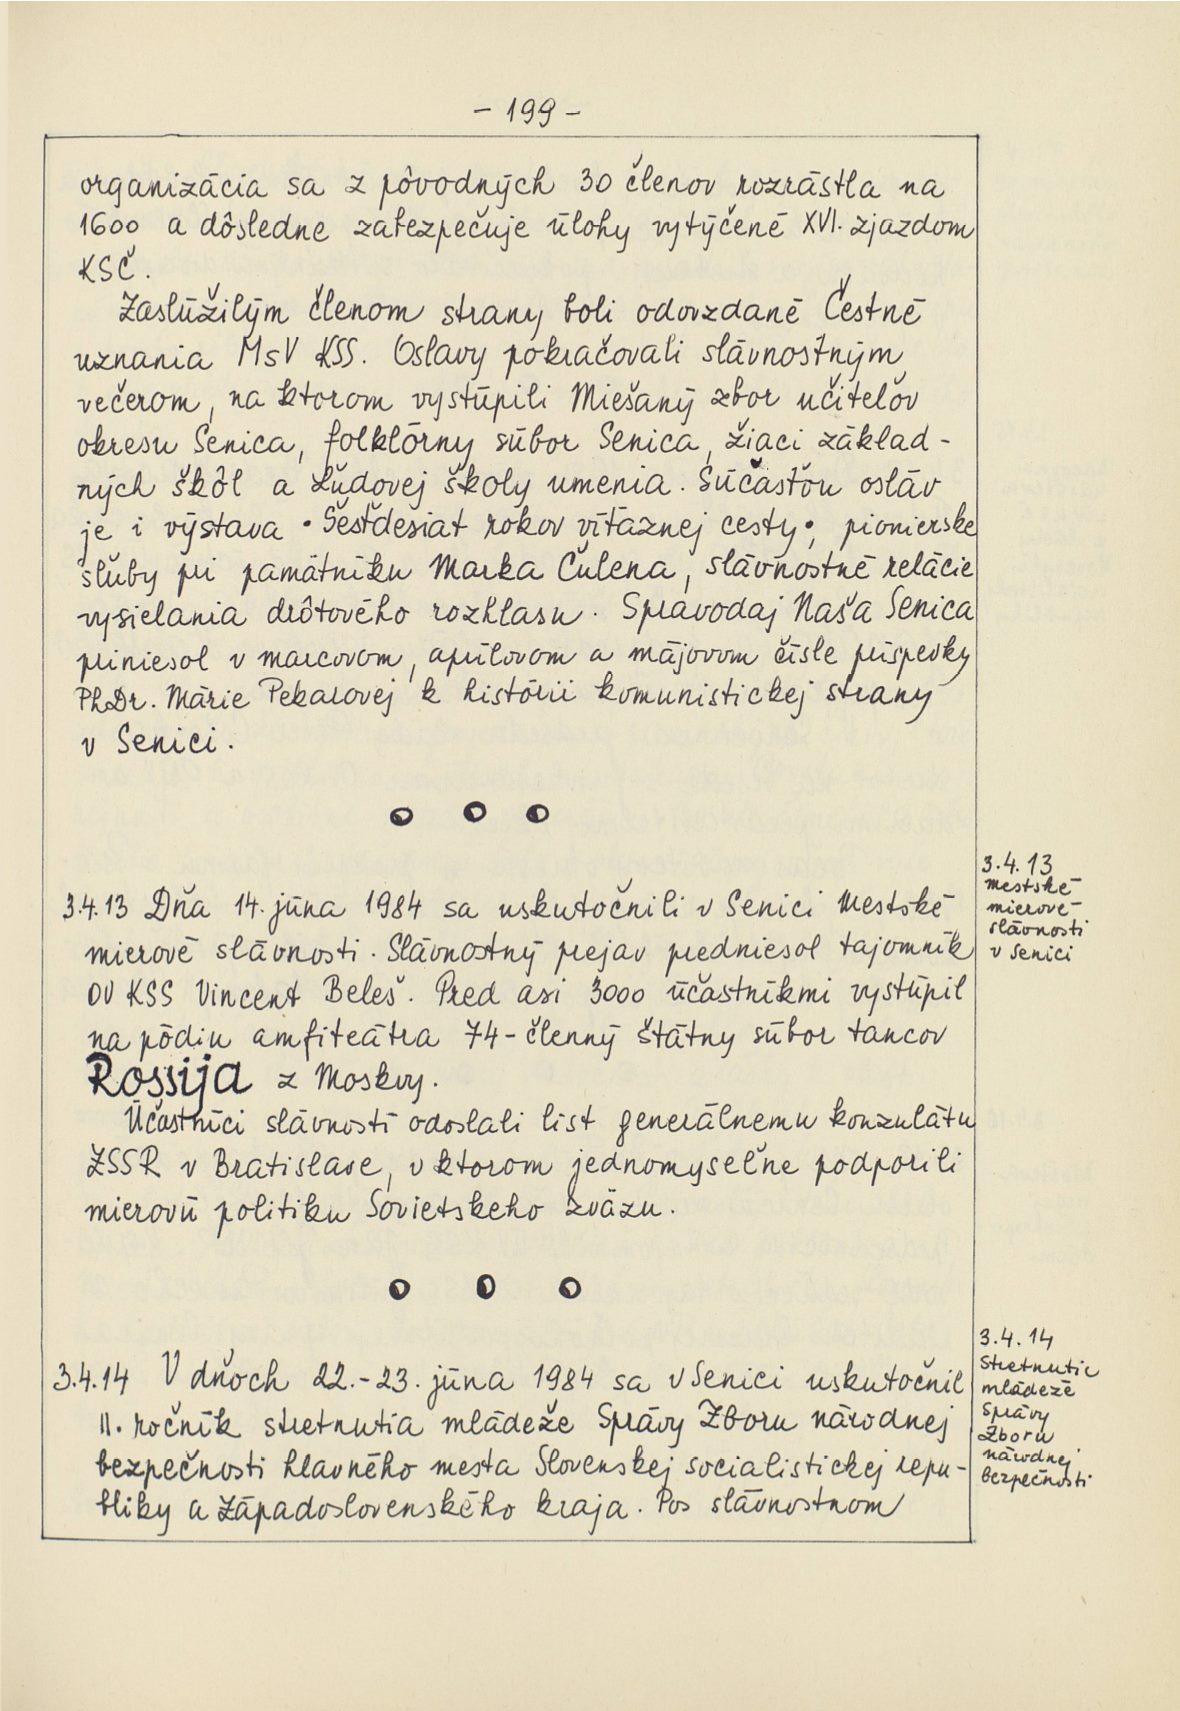 - 199 -
organizácia sa z pôvodných 30 členov rozrástla na
1600 a dôsledne zabezpečuje úlohy vytýčené XVI. zjazdom
KSČ.
Zaslúžilým členom strany boli odovzdané Čestné
uznania MsV KSS. Oslavy pokračovali slávnostným
večerom, na ktorom vystúpili Miešaný zbor učiteľov
okresu Senica, folklórny súbor Senica, žiaci základ-
ných škôl a Ľudovej školy umenia. Súčasťou osláv
je i výstava "Šesťdesiat rokov víťaznej cesty", pionierske
sľuby pri pamätníku Marka Čulena, slávnostné relácie
vysielania drôtového rozhlasu. Spravodaj Naša Senica
priniesol v marcovom, aprílovom a májovom čísle príspevky
PhDr. Márie Pekarovej k histórii komunistickej strany
v Senici.
3.4.13
Mestské
mierové
slávnosti
v Senici
3.4.13 Dňa 14. júna 1984 sa uskutočnili v Senici Mestské
mierové slávnosti. Slávnostný prejav predniesol tajomník
OV KSS Vincent Beleš. Pred asi 3000 účastníkmi vystúpil
na pódiu amfiteátra 74-členný štátny súbor tancov
Rossija z Moskvy.
Účastníci slávností odoslali list generálnemu konzulátu
ZSSR v Bratislave, v ktorom jednomyseľne podporili
mierovú politiku Sovietskeho zväzu.
3.4.14
Stretnutie
mládeže
Správy
Zboru
národnej
bezpečnosti
3.4.14 V dňoch 22.-23. júna 1984 sa v Senici uskutočnil
II. ročník stretnutia mládeže Správy Zboru národnej
bezpečnosti hlavného mesta Slovenskej socialistickej repu-
bliky a Západoslovenského kraja. Pos slávnostnom